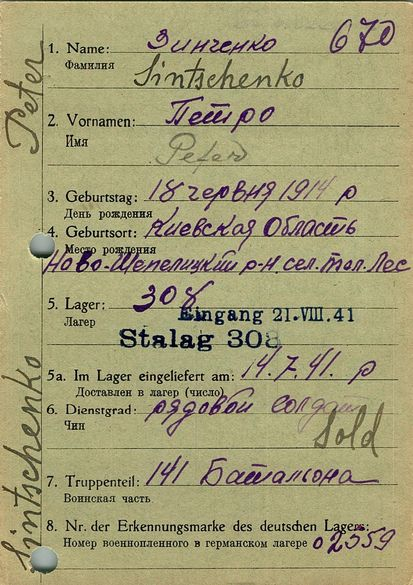 670
1. Name: Зинченко
Фамилия
Sintschenko
2. Vornamen: Петро
Имя
Peter
3. Geburtstag: 18 червня 1914 р
День рождения
4. Geburtsort: Киевская Область
Место рождения
Ново-Шепелицкий р-н. сел. Тол. Лес
5. Lager: 308
Лагер
Eingang 21.VIII.41
Stalag 308
5a. Im Lager eingeliefert am: 14.7.41. р
Доставлен в лагер (число)
6. Dienstgrad: рядовой солдат
Чин
Sold
7. Truppenteil: 141 Батальона
Воинская часть
8. Nr. der Erkennungsmarke des deutschen Lagers:
Номер военнопленного в германском лагере 02559
Peter
Sintschenko